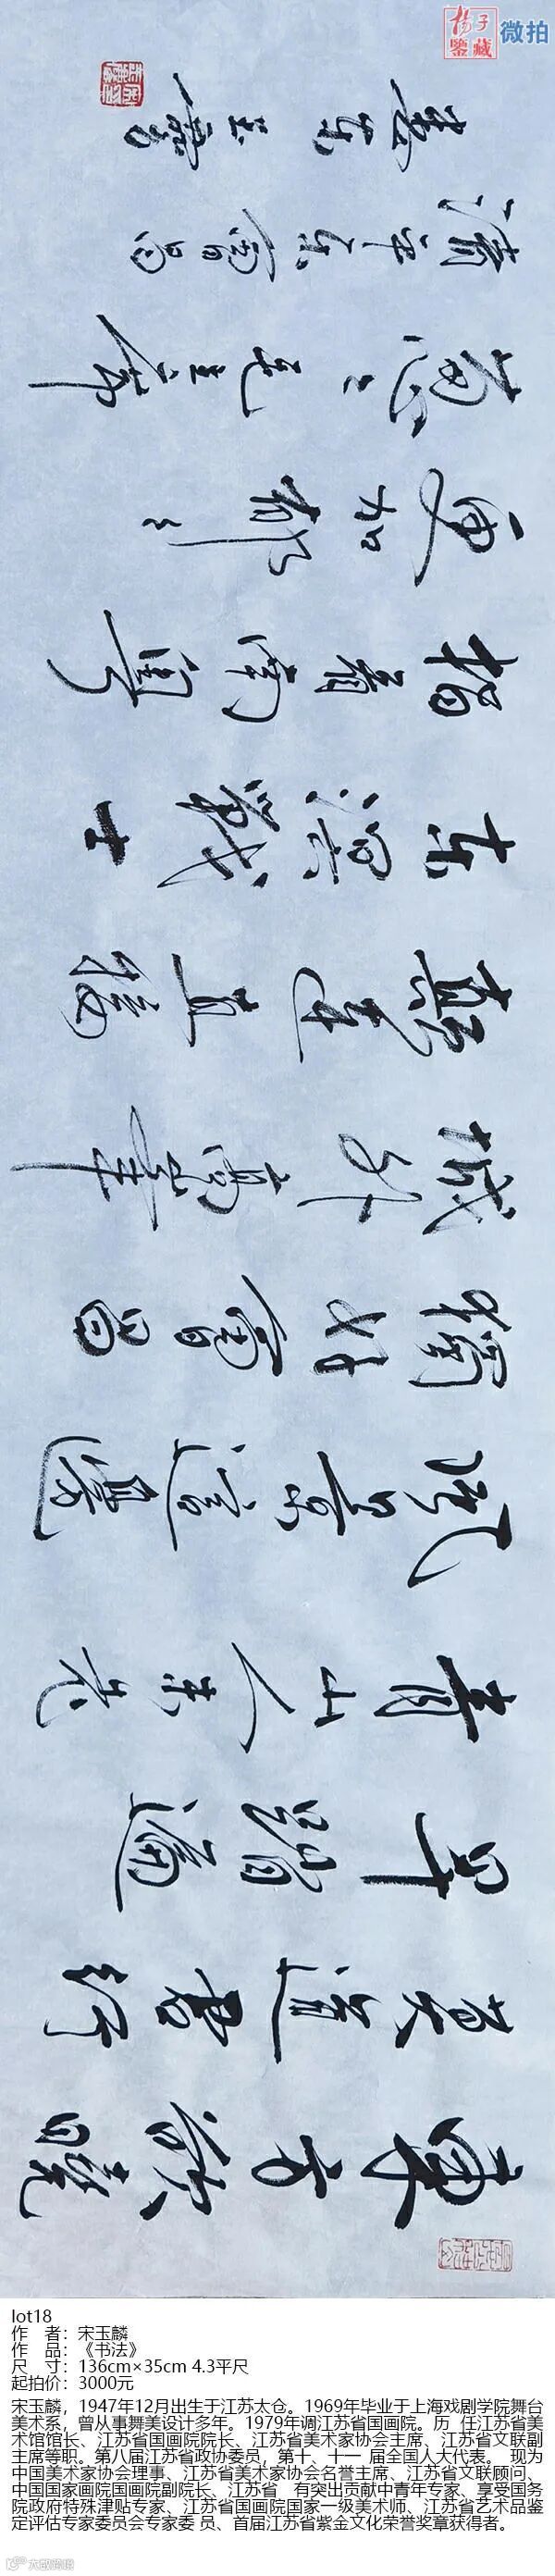 扬子
鉴藏
微拍
東方欲曉
莫道君行
早踏遍
青山人未老
風景這邊
獨好會昌
城外高峯
顛連直接
东溟戰士
指看南粵
更加郁〻
葱〻毛主席
清平乐會昌
lot18
作　者：宋玉麟
作　品：《书法》
尺　寸：136cm×35cm 4.3平尺
起拍价：3000元
宋玉麟，1947年12月出生于江苏太仓。1969年毕业于上海戏剧学院舞台
美术系，曾从事舞美设计多年。1979年调江苏省国画院。历 任江苏省美
术馆馆长、江苏省国画院院长、江苏省美术家协会主席、江苏省文联副
主席等职。第八届江苏省政协委员，第十、十一 届全国人大代表。 现为
中国美术家协会理事、江苏省美术家协会名誉主席、江苏省文联顾问、
中国国家画院国画院副院长、江苏省　有突出贡献中青年专家、享受国务
院政府特殊津贴专家、江苏省国画院国家一级美术师、江苏省艺术品鉴
定评估专家委员会专家委 员、首届江苏省紫金文化荣誉奖章获得者。